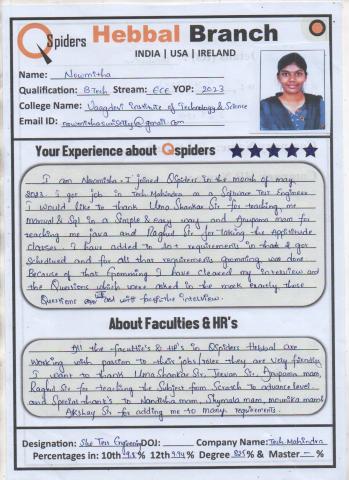 QSpiders Hebbal Branch
INDIA | USA | IRELAND
Name: Nowmitha
Qualification: BTech Stream: ECE YOP: 2023
College Name: Vaagdevi Institute of Technology & Science
Email ID: @gmail.com
Your Experience about Qspiders
I am Nowmitha. I joined Qspiders in the month of may
2023. I got job in Tech Mahindra as a Software Test Engineer
I would like to thank Uma Shankar Sir for teaching me
manual & Sql in a Simple & easy way and Anupama mam for
teaching me java and Raghul Sir for taking the Apptitude
classes. I have added to 10+ requirements in that I got
Scheduled and for all that requirements gromming was done
Because of that Gromming I have cleared my interview and
the Questions which were asked in the mock exactly those
Questions will the interview.
About Faculties & HR's
All the faculties & HR's in QSpiders Hebbal are
Working with passion to their jobs/roles they are very friendly
I want to thank Uma Shankar Sir, Jeevan Sir, Anupama mam,
Raghul Sir for teaching the Subject from Scratch to advance level.
and Special thanks to Nanditha mam, Shymala mam, mounika mam
Akshay Sir for adding me to many requirements.
Designation: Sw Test Engineer DOJ: Company Name: Tech Mahindra
Percentages in: 10th % 12th % Degree % & Master — %